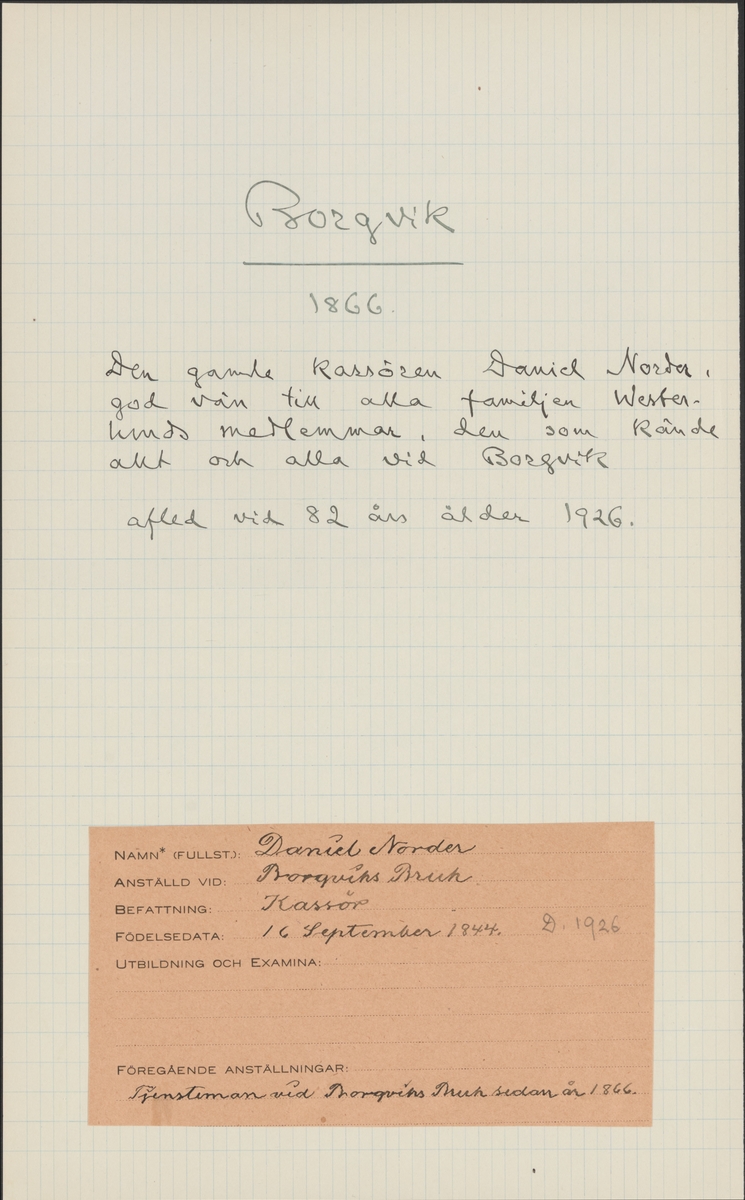 Borgvik
1866.
Den gamle kassören Daniel Norder,
god vän till alla familjen Wester-
lunds medlemmar, den som kände
allt och alla vid Borgvik
afled vid 82 års ålder 1926.
NAMN* (FULLST.): Daniel Norder
ANSTÄLLD VID: Borgviks Bruk
BEFATTNING: Kassör
FÖDELSEDATA: 16 September 1844. D. 1926
UTBILDNING OCH EXAMINA:
FÖREGÅENDE ANSTÄLLNINGAR:
Tjensteman vid Borgviks Bruk sedan år 1866.